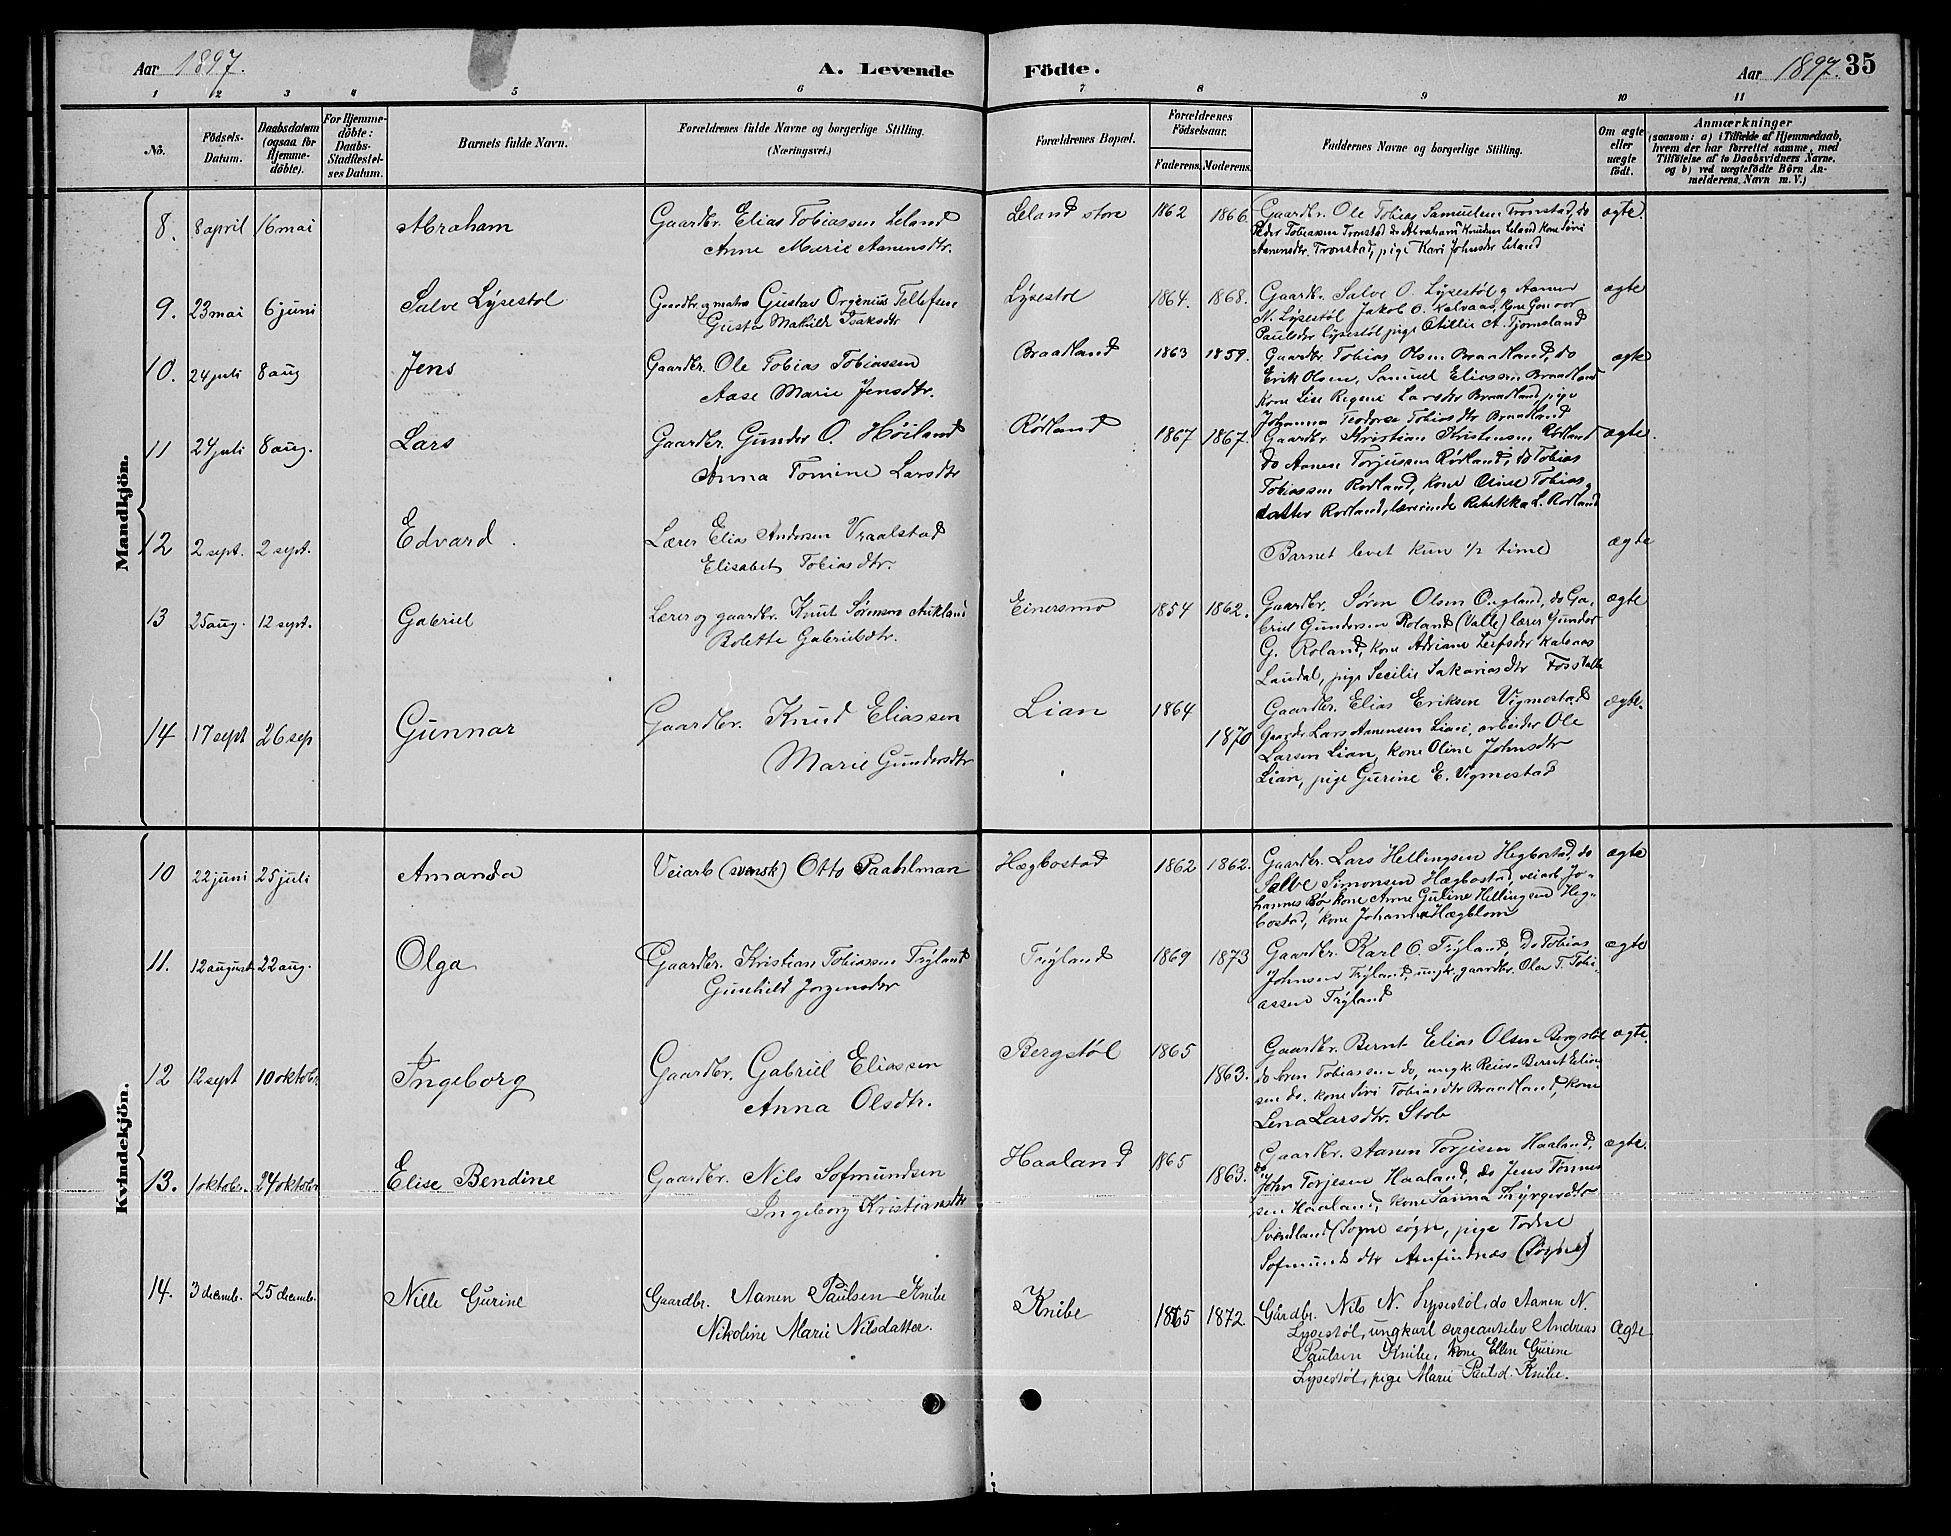 Aar 1897.
A. Levende Födte.
Aar 1897. 35
1 2 3 4 5 6 7 8 9 10 11
No.
Födsels-Datum.
Daabsdatum (ogsaa for Hjemme-döbte).
For Hjemme-döbte: Daabs-Stadfæstelses Datum.
Barnets fulde Navn.
Forældrenes fulde Navne og borgerlige Stilling. (Næringsvei.)
Forældrenes Bopæl.
Forældrenes Födselsaar.
Faderens. Moderens.
Faddernes Navne og borgerlige Stilling.
Om ægte eller uægte födt.
Anmærkninger
(saasom: a) i Tilfælde af Hjemmedaab, hvem der har forrettet samme, med Tilföielse af to Daabsvidners Navne, og b) ved uægtefödte Börn Anmelderens Navn m. V.)
Mandkjön.
8. 8 april 16 mai Abraham
Gaardbr. Elias Tobiassen Leland
Anne Marie Aanensdtr.
Leland store 1862 1866
Gaardbr. Ole Tobias Samuelsen Tronstad, do
Peder Tobiassen Tronstad do Abraham Knudsen Leland kone Siri
Aanensdtr. Tronstad, pige Kari Johnsdr Leland
ægte.
9. 23 mai 6 juni Salve Lysestol
Gaardbr. og matr. Gustav Orgenius Tellefsen
Gusta Mathilde Isaksdtr
Lysestol 1864. 1868.
Gaardbr. Salve O. Lysestöl, Aanen
N. Lysestöl Jakob O. Kalvaas, kone Gonvor
Paulsdr Lysestöl pige Otillie A. Tjomsland
ægte
10. 24 juli 8 aug Jens
Gaardbr. Ole Tobias Tobiassen
Aase Marie Jensdtr.
Braadland 1863 1859.
Gaardbr. Tobias Olsen Braadland, do
Erik Olsen, Samuel Eliassen Braadland
kone Lise Regine Larsdtr Braadland, pige
Johanna Teodorse Tobiasdtr Braadland
ægte
11 24 juli 8 aug. Lars
Gaardbr. Gunder O. Høiland
Anna Tomine Larsdtr
Rörland 1867 1867.
Gaardbr. Kristian Kristensen Rörland
do Aanen Torjussen Rørland, do Tobias
Tobiassen Rorland, kone Olnise Tobias
datter Rorland, lærerinde Rebekka L. Rorland
ægte.
12 2 sept. 2 sept. Edvard.
Lærer Elias Andersen Vraalstad
Elisabet Tobiasdtr.
Barnet levet kun 1/2 time
ægte
13 25 aug. 12 sept. Gabriel
Lærer og gaardbr. Knut Sørensen Aukland
Bolette Gabrielsdtr.
Einersmo 1854 1862.
Gaardbr. Søren Olsen Ougland, do Ga-
briel Gundersen Roland (Valle) lærer Gunder
G. Roland, kone Adriane Leifsdtr Kalenes
Laudal, pige Secilie Sakariasdtr
ægte
14 17 sept 26 sep Gunnar
Gaardbr. Knud Eliassen
Marie Gundersdtr
Lian 1864 1870
Gaardbr. Elias Eriksen Vigmostad
Gaardbr Lars Aanensen Lian, arbeider Ole
Larsen Lian, kone Oline Johnsdtr
Lian, pige Gurine E. Vigmostad
ægte.
Kvindekjön.
10 22 juni 25 juli Amanda
Veiarb (svensk) Otto Paahlman
Hægbostad 1862 1862.
Gaardbr. Lars Hellingsen Hegbostad, do
Salve Simonsen Hægbostad, veiarb Jo-
hannes Bör kone Anne Guline Hellingsen Heg-
bostad, kone Johanna Hægblom
ægte
11. 12 august 22 aug. Olga
Gaardbr. Kristian Tobiassen Tryland
Gunhild Jorgensdtr
Tryland 1869 1873
Gaardbr. Karl O. Tryland, do Tobias
Johnsen Tryland, ungk. gaardbr. Olav T. Tobi-
assen Tryland
ægte
12 12 sept 10 oktobr. Ingeborg
Gaardbr. Gabriel Eliassen
Anna Olsdtr.
Bergstøl 1865 1863.
Gaardbr. Bernt Elias Olsen Bergstöl
do Sören Tobiassen do, ungk. Reier Bernt Elias-
sen do. kone Siri Tobiasdtr Braadland, kone
Lena Larsdtr. Stob
ægte.
13. 1 oktobr. 24 oktobr Elise Bendine
Gaardbr. Nils Sofmundsen
Ingeborg Kristiansdtr
Haaland 1865 1863.
Gaardbr. Aanen Torjesen Haaland,
do John Torjesen Haaland, do Jens Tönnes-
sen Haaland, kone Sanna Thyrgersdtr
Svindland (Sogne sogn, pige Todne
Sofmundsdtr Amfindnæs (Sögne)
ægte.
14. 3 decemb. 25 decemb. Nille Gurine
Gaardbr. Aanen Paulsen Knibe
Nikoline Marie Nilsdatter.
Knibe 1865 1872
Gardbr. Nils N. Lysestöl, do Aanen N.
Lysestöl, ungkarl sergeantelev Andreas
Paulsen Knibe, kone Ellen Gurine
Lysestöl, pige Marie Paulsd. Knibe.
Ægte